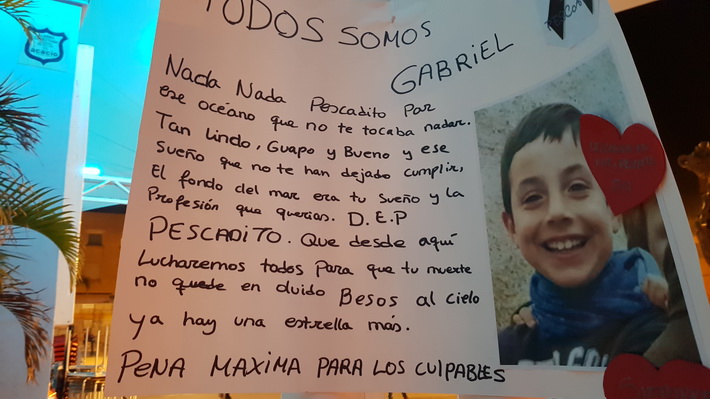 TODOS SOMOS
GABRIEL
Nada Nada Pescadito por
ese océano que no te tocaba nadar.
Tan Lindo, Guapo y Bueno y ese
sueño que no te han dejado cumplir,
El fondo del mar era tu sueño y la
Profesión que querias. D.E.P
PESCADITO. Que desde aquí
Lucharemos todos para que tu muerte
no quede en oluido Besos al cielo
ya hay una estrella más.
PENA MAXIMA PARA LOS CULPABLES